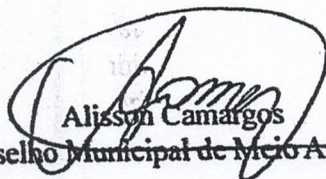 Alisson Camargos
selho Municipal de Meio A